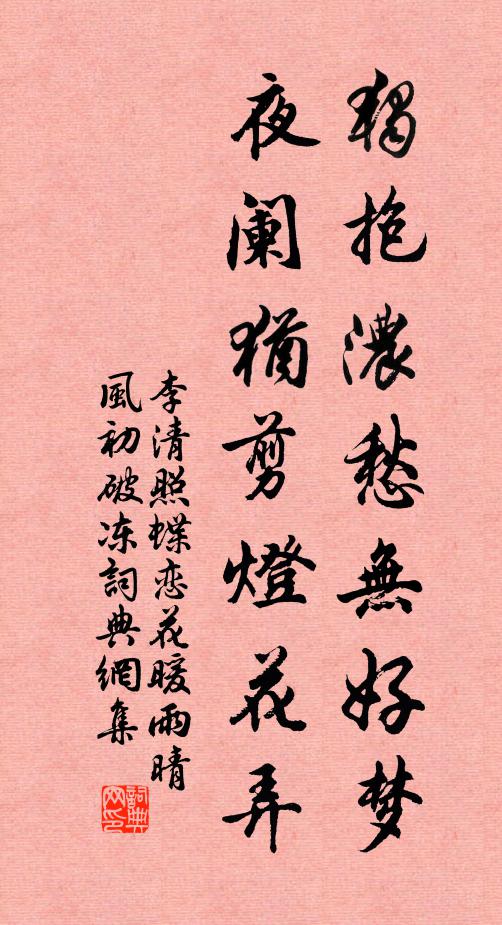 獨抱濃愁無好梦
夜阑猶剪燈花弄
李清照蝶恋花暖雨晴
風初破冻詞典網集
詞典
网印